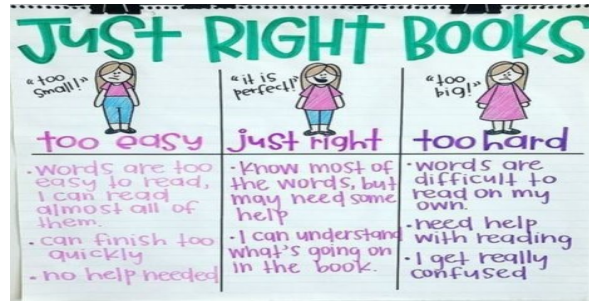 JUST RIGHT BOOKS
"too
small!"
too easy
• words are too
easy to read,
I can read
almost all of
them.
• can finish too
quickly
• no help needed
"it is
perfect!"
just right
• Know most of
the words, but
may need some
help
• I can understand
what's going on
in the book.
"too
big!"
too hard
• words are
difficult to
read on my
own.
• need help
with reading
• I get really
confused